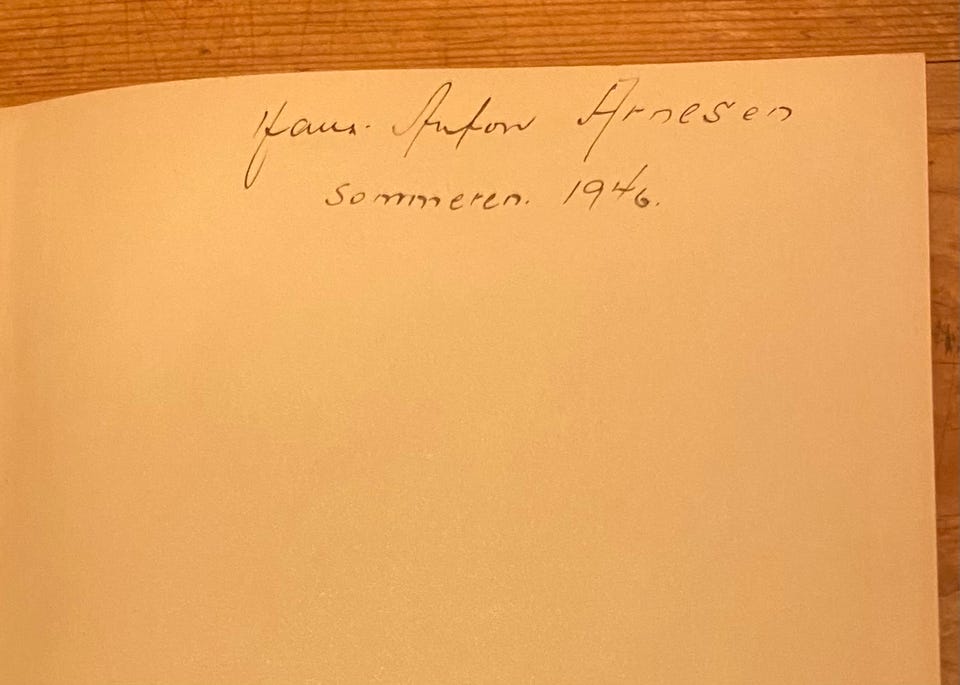 Hans Anton Arnesen
sommeren. 1946.